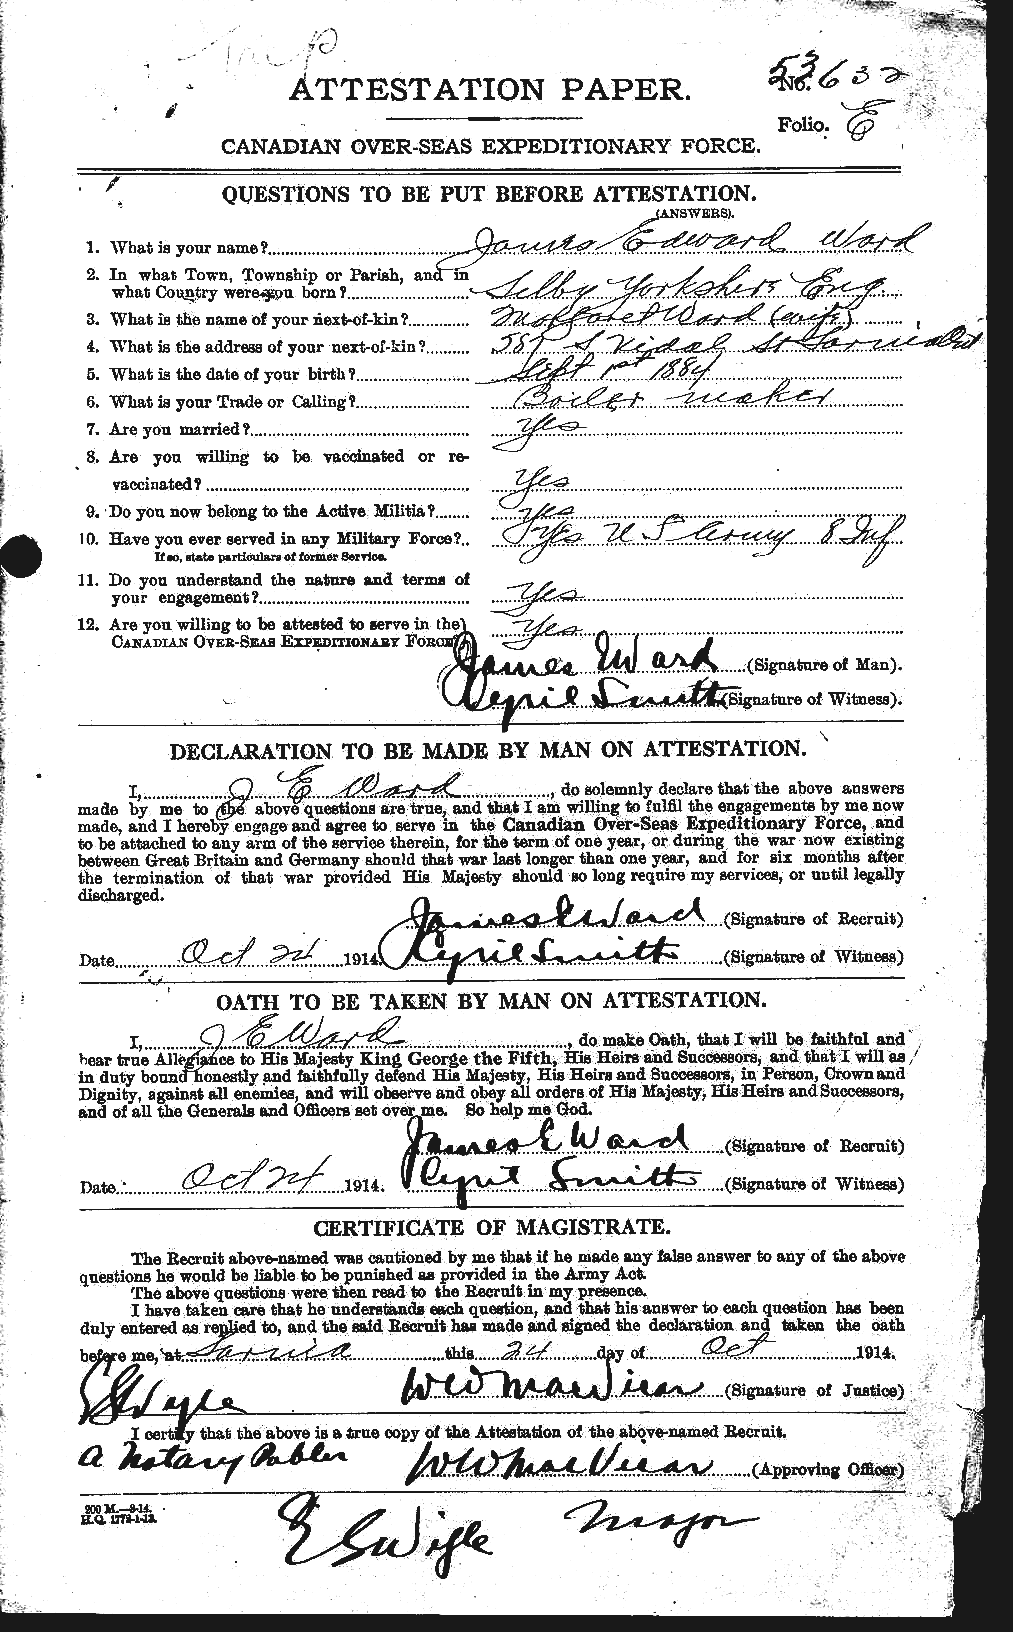 Trip
ATTESTATION PAPER.
No. 53632
Folio. E
CANADIAN OVER-SEAS EXPEDITIONARY FORCE.
QUESTIONS TO BE PUT BEFORE ATTESTATION.
(ANSWERS).
1. What is your name? James Edward Ward
2. In what Town, Township or Parish, and in
what Country were you born? Selby Yorkshire Eng
3. What is the name of your next-of-kin? Margaret Ward (wife)
4. What is the address of your next-of-kin? S Vidal St Sarnia Ont
5. What is the date of your birth? Sept 1st 1884
6. What is your Trade or Calling? Boiler maker
7. Are you married? Yes
8. Are you willing to be vaccinated or re-
vaccinated? Yes
9. Do you now belong to the Active Militia? Yes
10. Have you ever served in any Military Force? Yes U S Army 8 Inf
If so, state particulars of former Service.
11. Do you understand the nature and terms of
your engagement? Yes
12. Are you willing to be attested to serve in the Yes
CANADIAN OVER-SEAS EXPEDITIONARY FORCE?
James Ward (Signature of Man).
Cyril Smith (Signature of Witness).
DECLARATION TO BE MADE BY MAN ON ATTESTATION.
I, J E Ward, do solemnly declare that the above answers
made by me to the above questions are true, and that I am willing to fulfil the engagements by me now
made, and I hereby engage and agree to serve in the Canadian Over-Seas Expeditionary Force, and
to be attached to any arm of the service therein, for the term of one year, or during the war now existing
between Great Britain and Germany should that war last longer than one year, and for six months after
the termination of that war provided His Majesty should so long require my services, or until legally
discharged.
James E Ward (Signature of Recruit)
Date Oct 24 1914. Cyril Smith (Signature of Witness)
OATH TO BE TAKEN BY MAN ON ATTESTATION.
I, J E Ward, do make Oath, that I will be faithful and
bear true Allegiance to His Majesty King George the Fifth, His Heirs and Successors, and that I will as
in duty bound honestly and faithfully defend His Majesty, His Heirs and Successors, in Person, Crown and
Dignity, against all enemies, and will observe and obey all orders of His Majesty, His Heirs and Successors,
and of all the Generals and Officers set over me. So help me God.
James E Ward (Signature of Recruit)
Date Oct 24 1914. Cyril Smith (Signature of Witness)
CERTIFICATE OF MAGISTRATE.
The Recruit above-named was cautioned by me that if he made any false answer to any of the above
questions he would be liable to be punished as provided in the Army Act.
The above questions were then read to the Recruit in my presence.
I have taken care that he understands each question, and that his answer to each question has been
duly entered as replied to, and the said Recruit has made and signed the declaration and taken the oath
before me, at Sarnia this 24 day of Oct 1914.
E S Wigle W W MacVicar (Signature of Justice)
I certify that the above is a true copy of the Attestation of the above-named Recruit.
A Notary Public W W MacVicar (Approving Officer)
200 M.—8-14.
H.Q. 1772-1-13.
E S Wigle Major